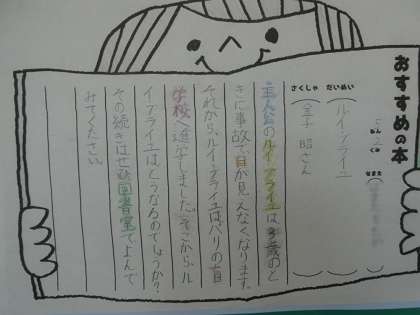 おすすめの本
ねん くみ なまえ(
だいめい(ルイ・ブライユ)
さくしゃ(金子 昭さん)
主人公のルイ・ブライユは3歳のと
きに事故で、目が見えなくなります。
それから、ルイ・ブライユはパリの盲
学校へ進学しました。そこから、ル
イ・ブライユはどうなるのでしょうか?
その続きはぜひ図書室でよんで
みてください。